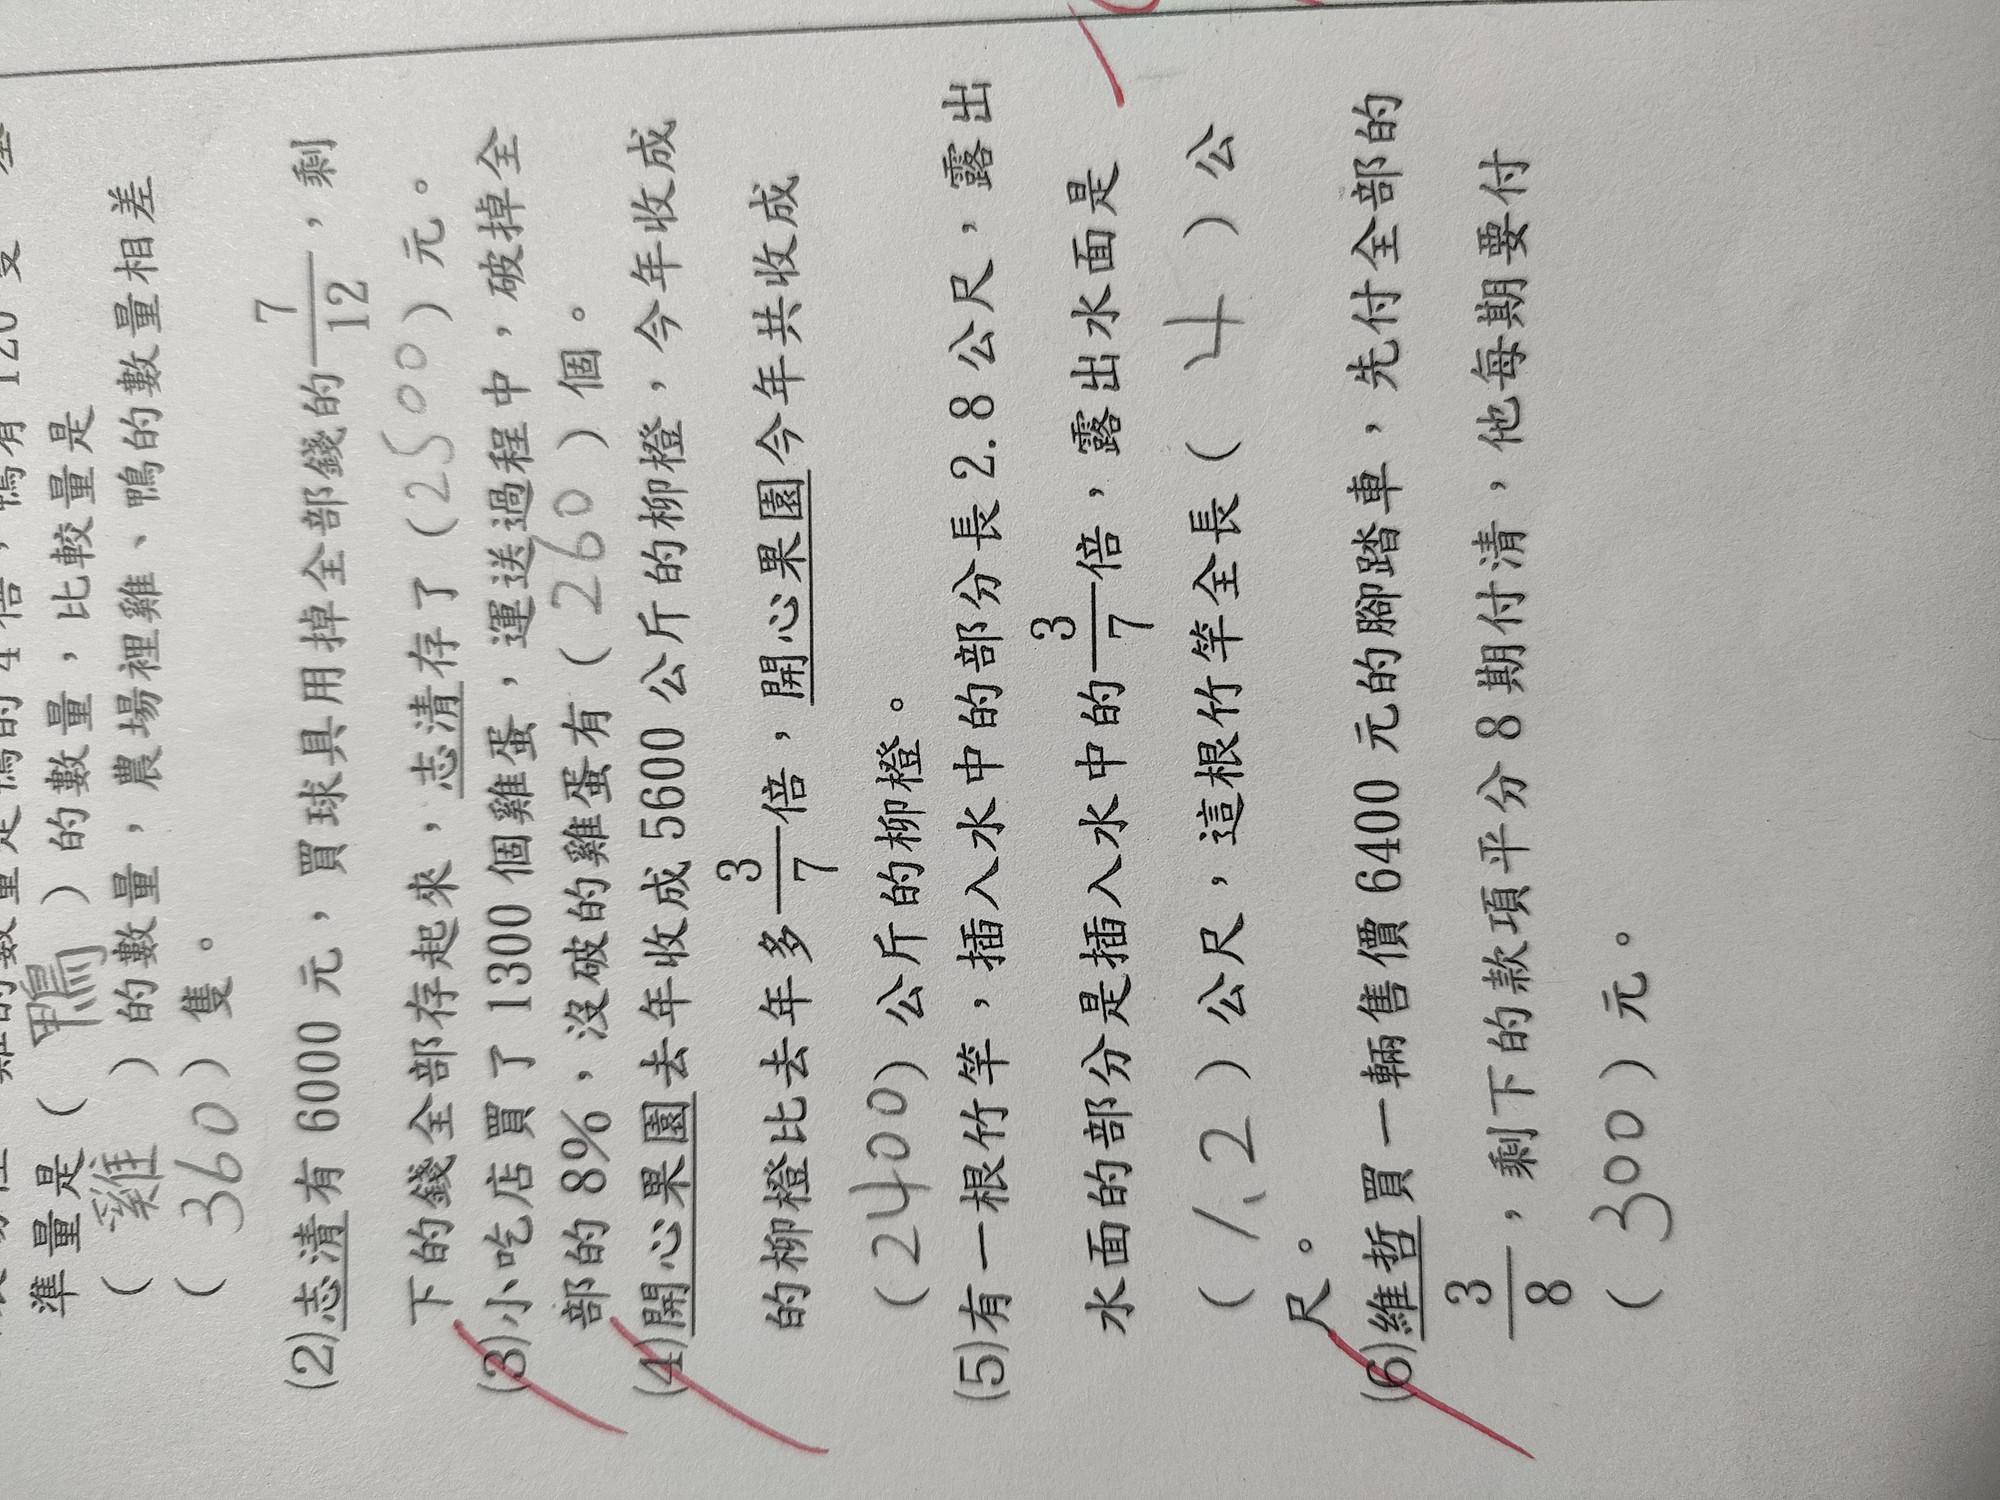 的4倍,鴨有120隻
準量是( 鴨 )的數量,比較量是
( 雞 )的數量,農場裡雞、鴨的數量相差
( 360 )隻。
(2)志清有 6000 元,買球具用掉全部錢的7/12,剩
下的錢全部存起來,志清存了( 2500 )元。
(3)小吃店買了 1300 個雞蛋,運送過程中,破掉全
部的 8%,沒破的雞蛋有( 260 )個。
(4)開心果園去年收成 5600 公斤的柳橙,今年收成
的柳橙比去年多3/7倍,開心果園今年共收成
( 2400 )公斤的柳橙。
(5)有一根竹竿,插入水中的部分長 2.8 公尺,露出
水面的部分是插入水中的3/7倍,露出水面是
( 1.2 )公尺,這根竹竿全長( 4 )公
尺。
(6)維哲買一輛售價 6400 元的腳踏車,先付全部的
3/8,剩下的款項平分 8 期付清,他每期要付
( 300 )元。